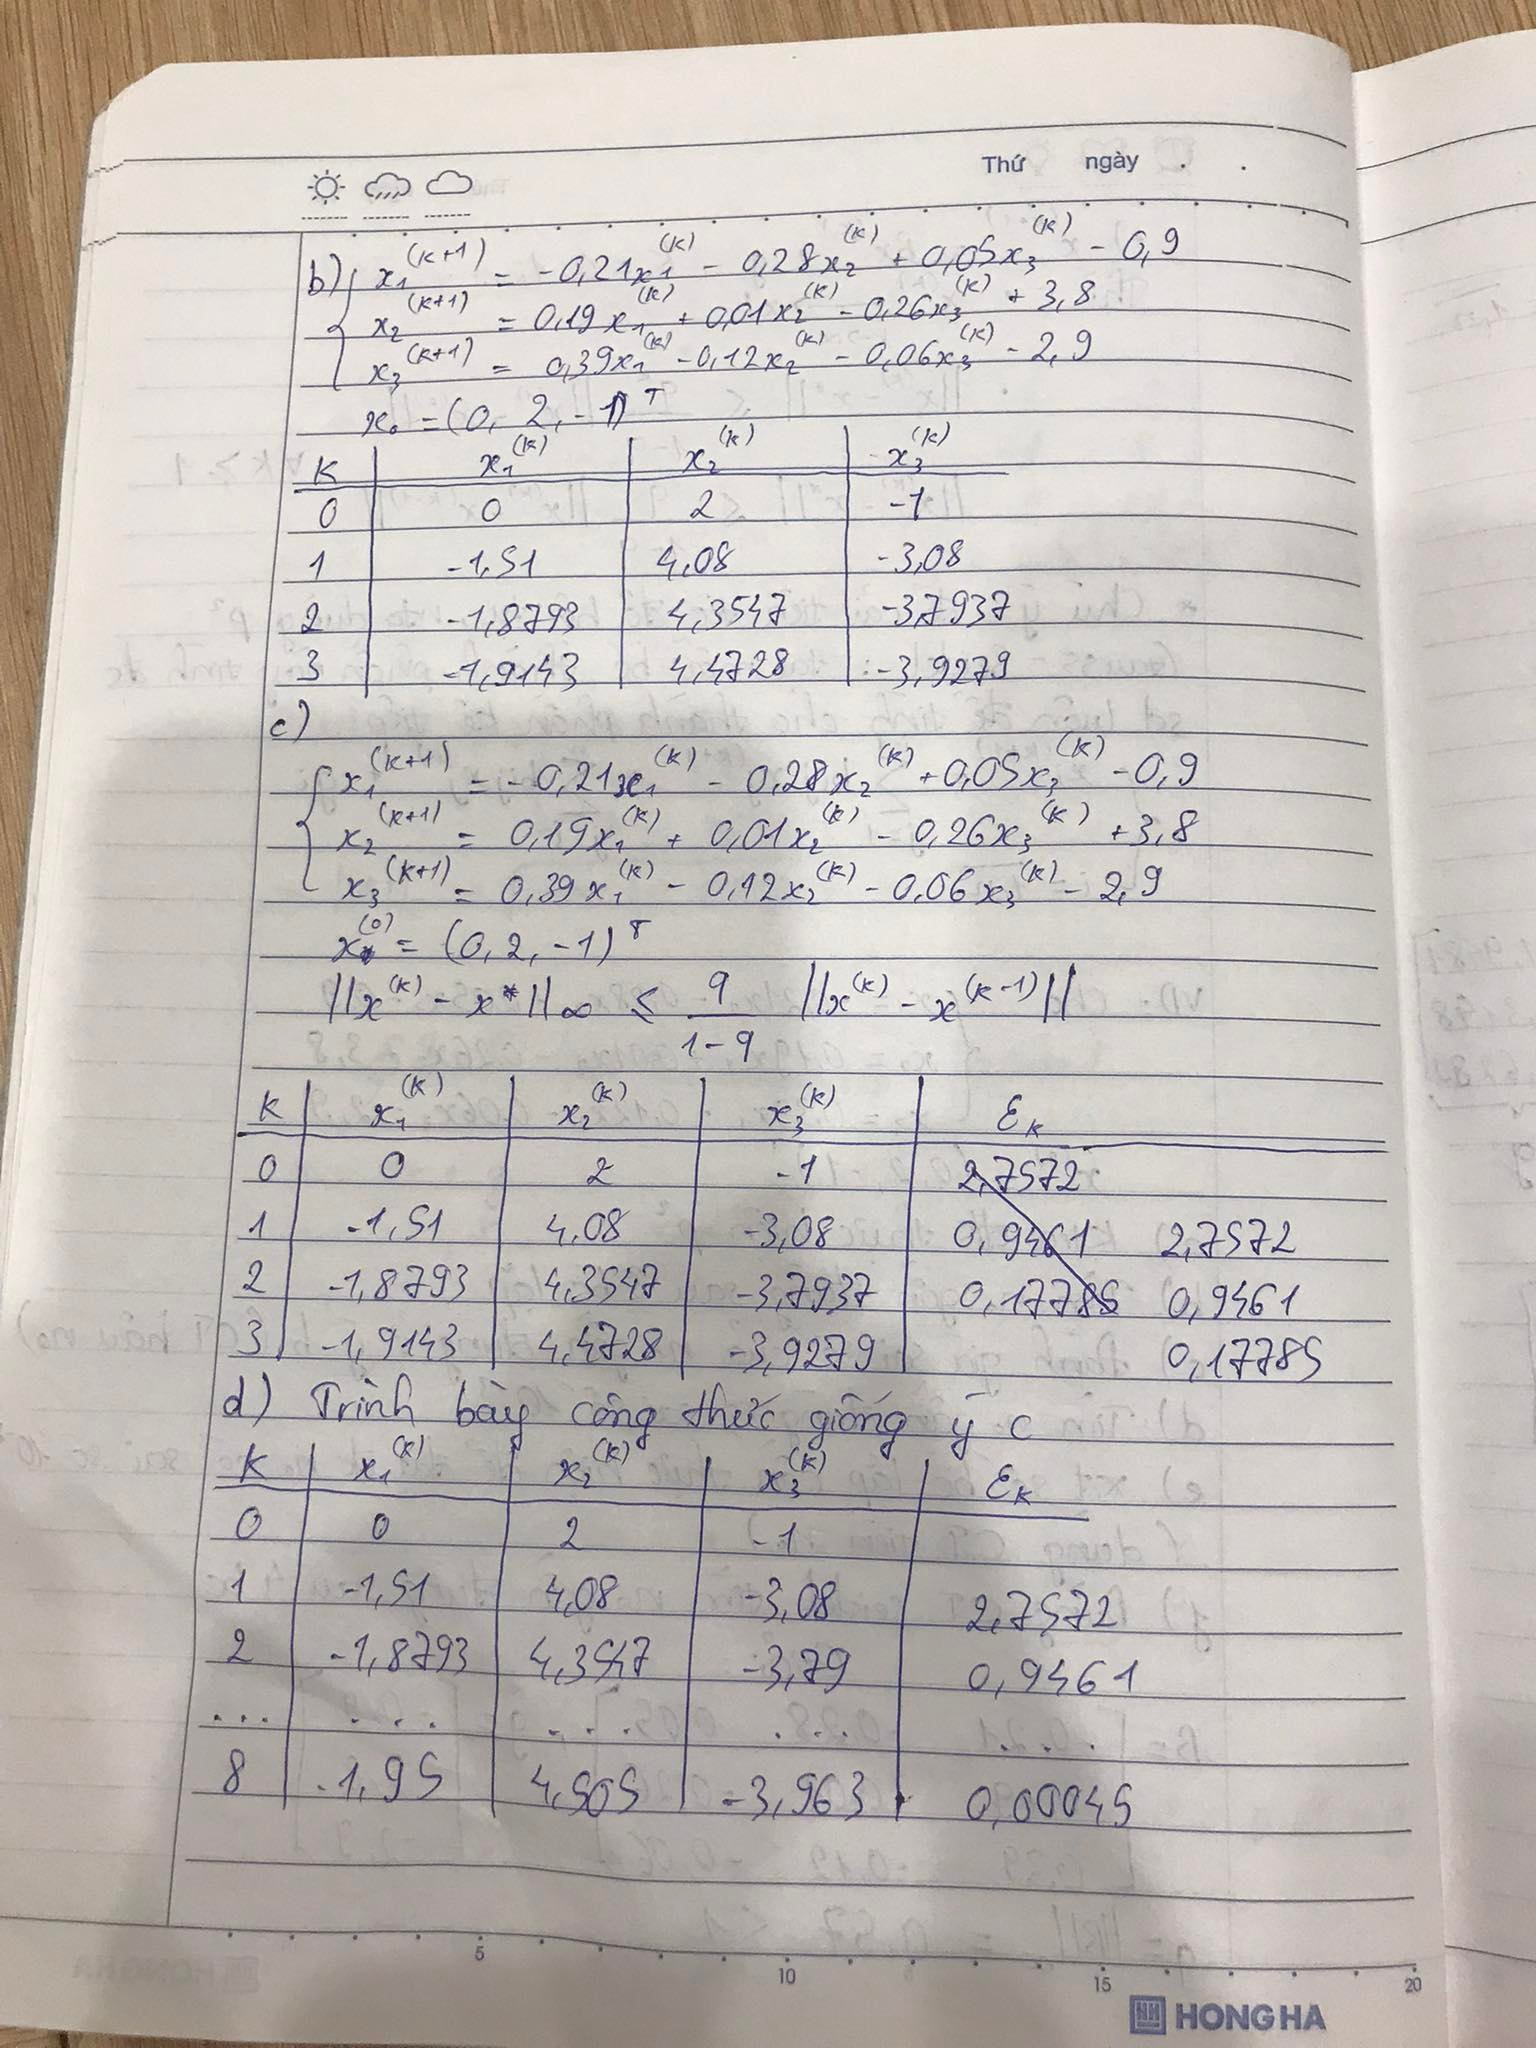 Thứ ngày . .
b) { x₁^(k+1) = -0,21x₁^(k) - 0,28x₂^(k) + 0,05x₃^(k) - 0,9
x₂^(k+1) = 0,19x₁^(k) + 0,01x₂^(k) - 0,26x₃^(k) + 3,8
x₃^(k+1) = 0,39x₁^(k) - 0,12x₂^(k) - 0,06x₃^(k) - 2,9
x₀ = (0, 2, -1)^T
K x₁^(k) x₂^(k) x₃^(k)
0 0 2 -1
1 -1,51 4,08 -3,08
2 -1,8793 4,3547 -3,7937
3 -1,9143 4,4728 -3,9279
c)
{ x₁^(k+1) = -0,21x₁^(k) - 0,28x₂^(k) + 0,05x₃^(k) - 0,9
x₂^(k+1) = 0,19x₁^(k) + 0,01x₂^(k) - 0,26x₃^(k) + 3,8
x₃^(k+1) = 0,39x₁^(k) - 0,12x₂^(k) - 0,06x₃^(k) - 2,9
x^(0) = (0, 2, -1)^T
||x^(k) - x*||∞ ≤ q/(1-q) ||x^(k) - x^(k-1)||
K x₁^(k) x₂^(k) x₃^(k) ε_k
0 0 2 -1 2,7572
1 -1,51 4,08 -3,08 0,9461 2,7572
2 -1,8793 4,3547 -3,7937 0,17785 0,9461
3 -1,9143 4,4728 -3,9279 0,17785
d) Trình bày công thức giống ý c
K x₁^(k) x₂^(k) x₃^(k) ε_k
0 0 2 -1
1 -1,51 4,08 -3,08 2,7572
2 -1,8793 4,3547 -3,79 0,9461
... ... ... ...
8 -1,95 4,505 -3,963 0,00045
5 10 15 20
HONG HA